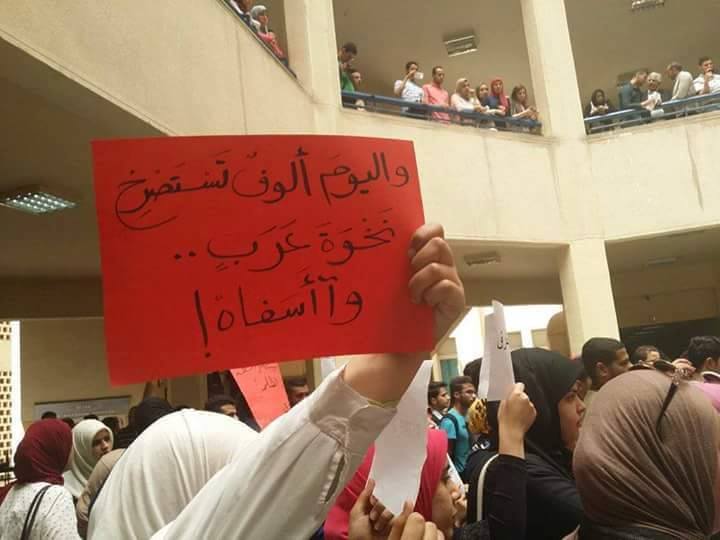 واليَومَ ألوفٌ تَسْتَصْرِخُ
نَخْوَةَ عَرَبٍ ..
وآأسَفاهْ !